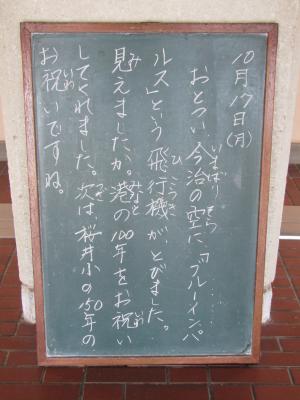 10月17日(月)
おとつい今治の空に、「ブルーインパ
ルス」という飛行機がとびました。
見えましたか。港の100年をお祝い
してくれました。次は桜井小の150年の
お祝いですね。